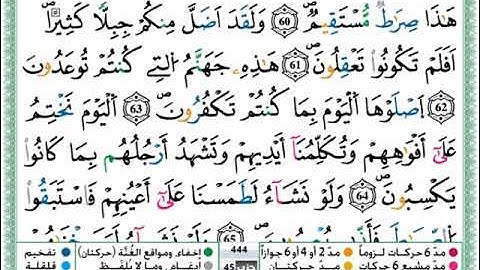 هَٰذَا صِرَاطٌ مُّسْتَقِيمٌ ۝60 وَلَقَدْ أَضَلَّ مِنكُمْ جِبِلًّا كَثِيرًا ۖ
أَفَلَمْ تَكُونُوا۟ تَعْقِلُونَ ۝61 هَٰذِهِۦ جَهَنَّمُ ٱلَّتِى كُنتُمْ تُوعَدُونَ
۝62 ٱصْلَوْهَا ٱلْيَوْمَ بِمَا كُنتُمْ تَكْفُرُونَ ۝63 ٱلْيَوْمَ نَخْتِمُ
عَلَىٰٓ أَفْوَٰهِهِمْ وَتُكَلِّمُنَآ أَيْدِيهِمْ وَتَشْهَدُ أَرْجُلُهُم بِمَا كَانُوا۟
يَكْسِبُونَ ۝64 وَلَوْ نَشَآءُ لَطَمَسْنَا عَلَىٰٓ أَعْيُنِهِمْ فَٱسْتَبَقُوا۟
65
مدّ 6 حركات لزوماً مدّ 2 أو 4 أو 6 جوازاً 444 إخفاء، ومواقع الغُنَّة (حركتان) تفخيم
مدّ حركتان إدغام، وما لا يُلفظ قلقلة